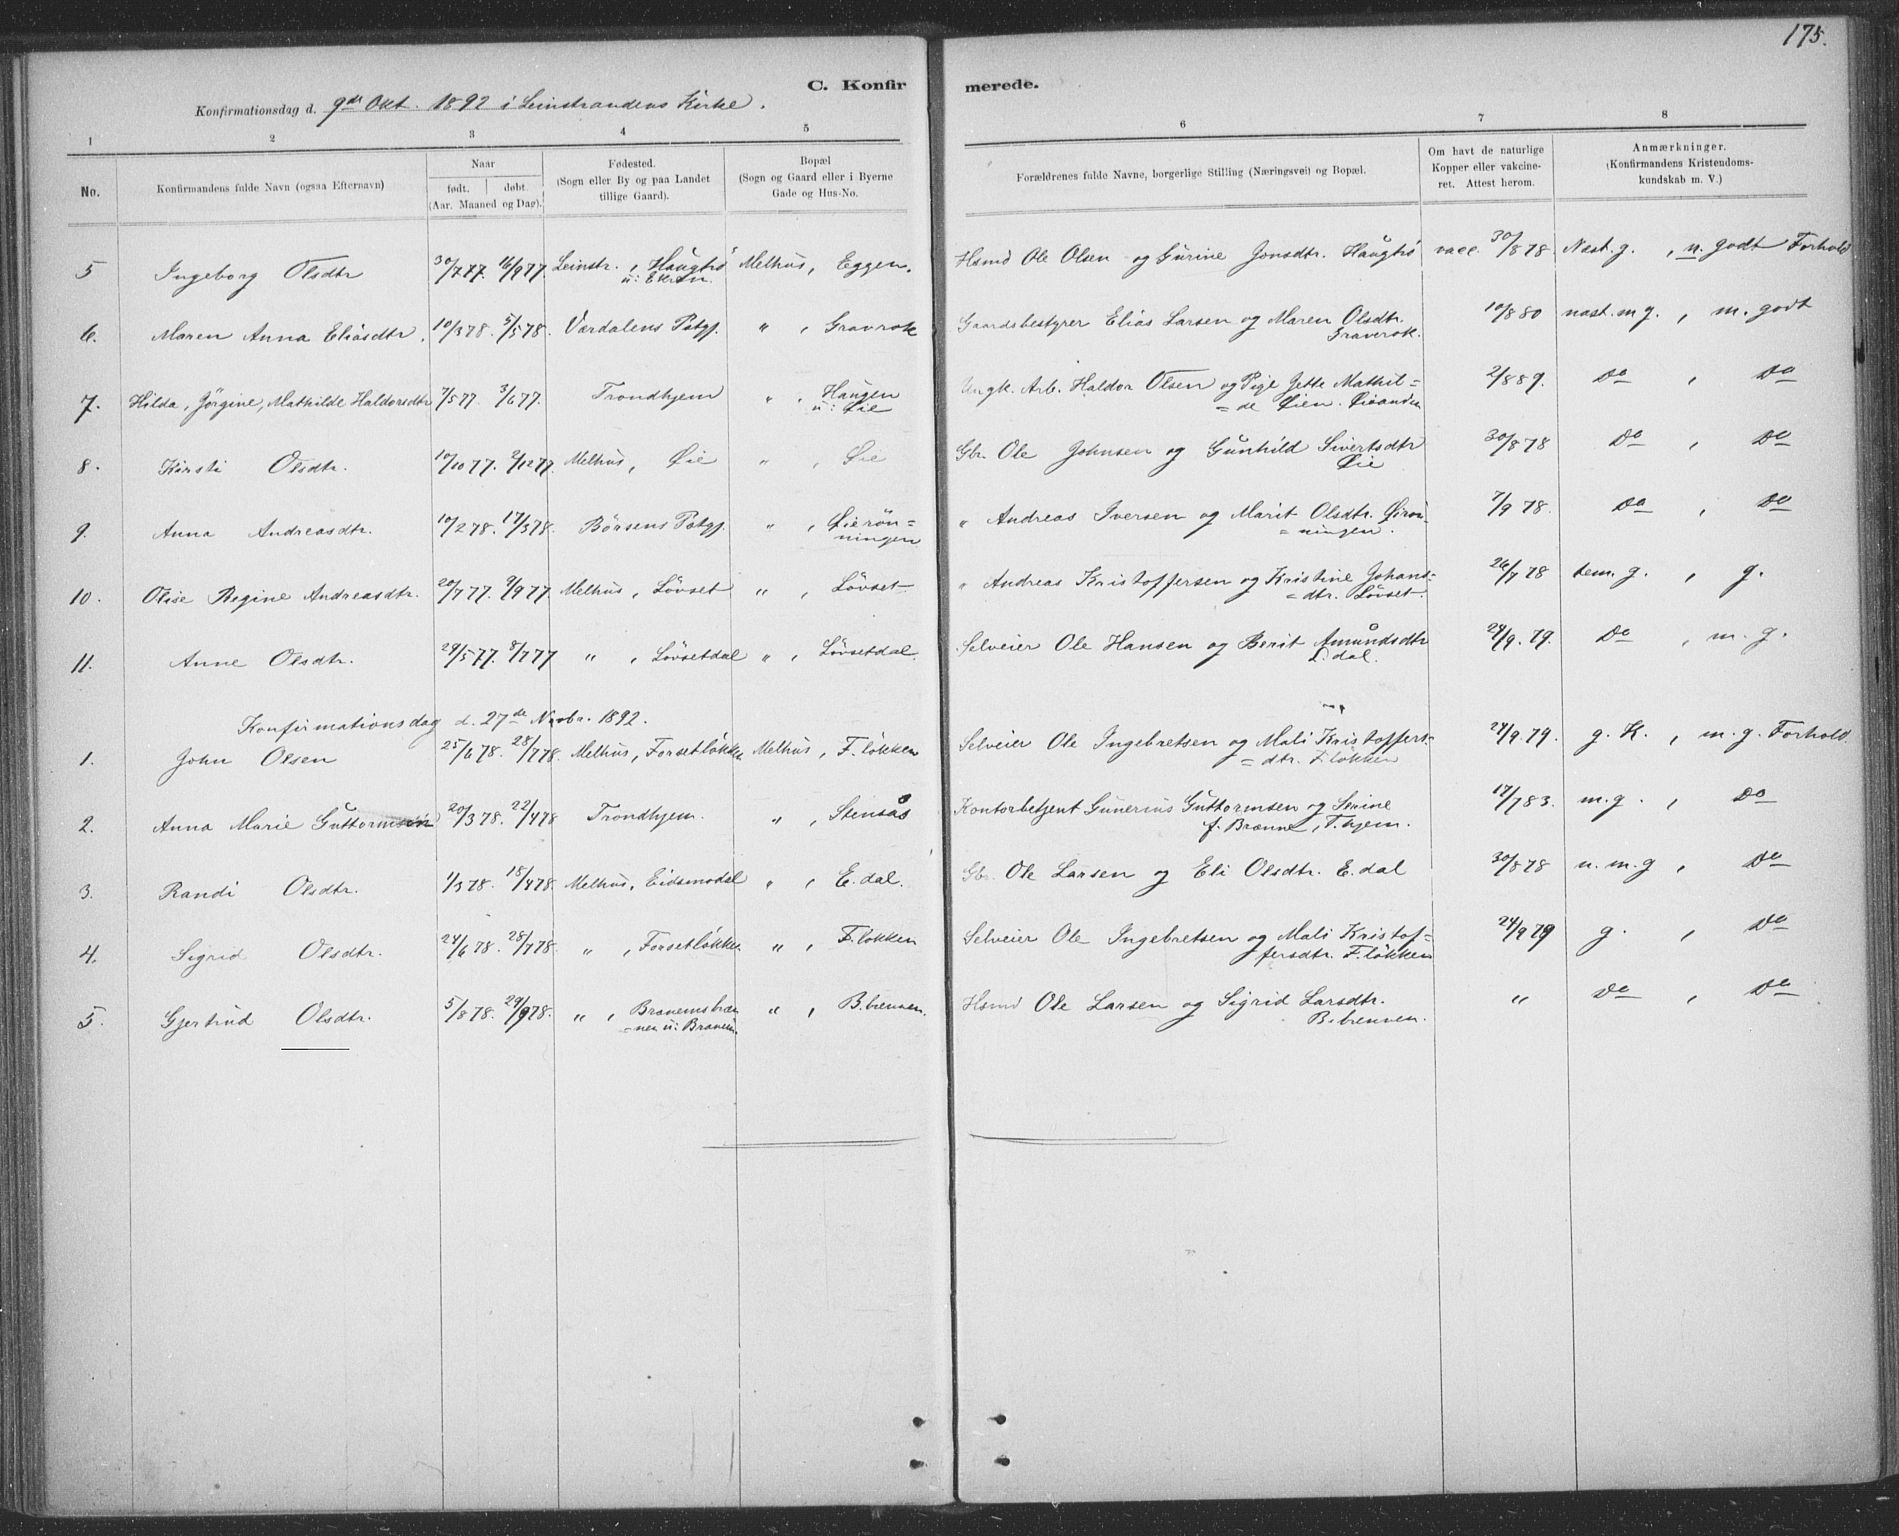 175.
C. Konfirmerede.
Konfirmationsdag d. 9de Okt. 1892 i Leinstrandens Kirke.
1 2 3 4 5 6 7 8
No. | Konfirmandens fulde Navn (ogsaa Efternavn) | Naar født. døbt. (Aar. Maaned og Dag). | Fødested. (Sogn eller By og paa Landet tillige Gaard). | Bopæl (Sogn og Gaard eller i Byerne Gade og Hus-No. | Forældrenes fulde Navne, borgerlige Stilling (Næringsvei) og Bopæl. | Om havt de naturlige Kopper eller vakcineret. Attest herom. | Anmærkninger. (Konfirmandens Kristendomskundskab m. V.)
5 Ingeborg Olsdtr 30/7 77. 16/9 77. Leinstr., Haugtrø u: Ekren. Melhus, Eggen. Hsmd Ole Olsen og Gurine Jonsdtr. Haugtrø vacc. 30/8 78 Næst. g., n. godt Forhold
6. Maren Anna Eliasdtr. 10/3 78. 5/5 78. Værdalens Pstgj. " , Gravrok Gaardsbestyrer Elias Larsen og Maren Olsdtr. Gravrok. 10/8 80 næst. m g., m. godt
7. Hilda, Jørgine, Mathilde Haldorsdtr 7/5 77. 3/6 77. Trondhjem " , Haugen u: Øie Ungk. Arb. Haldor Olsen og Pige Jette Mathil=
=de Øien. Øisanden 2/8 89. Do , Do
8. Kirsti Olsdtr. 10/10 77. 2/12 77. Melhus, Øie " , Øie Gbr. Ole Johnsen og Gunhild Sivertsdtr Øie 30/8 78 Do , Do
9. Anna Andreasdtr. 10/2 78. 17/3 78. Børsens Pstgj. " , Øierön=
ningen " Andreas Iversen og Marit Olsdtr. Øirön
=ningen. 7/9 78. Do , Do
10. Olise Regine Andreasdtr. 20/7 77. 9/9 77. Melhus, Lövset " , Lövset " Andreas Kristoffersen og Kristine Johans=
=dtr. Lövset. 26/7 78 tem. g. , g.
11. Anne Olsdtr. 29/5 77. 8/7 77 " , Lövsetdal " , Lövsetdal. Selveier Ole Hansen og Berit Amundsdtr L.dal. 29/9. 79. Do , m. g.
Konfirmationsdag d. 27de Novbr. 1892.
1. John Olsen 25/6 78. 28/7 78. Melhus, Forsetløkken Melhus, F.løkken Selveier Ole Ingebretsen og Mali Kristoffers=
=dtr. F.løkken 24/9. 79. g. K. , m. g. Forhold.
2. Anna Marie Guttormsen 20/3 78. 22/4 78 Trondhjem. " , Stensås Kontorbetjent Gunerius Guttormsen og Serine f. Brønne, T.hjem. 17/7 83. m. g. , Do
3. Randi Olsdtr. 1/3 78. 18/4 78. Melhus, Eidsmodal " , E. dal. Gbr. Ole Larsen og Eli Olsdtr. E. dal 30/8 78 n. m. g , Do
4. Sigrid Olsdtr. 24/6 78. 28/7 78. " , Forsetløkken " , F.løkken Selveier Ole Ingebretsen og Mali Kristof=
fersdtr. F.løkken 24/9 79 g. , Do
5. Gjertrud Olsdtr. 5/8 78. 29/9 78. " , Bravemsbræn
=nen u: Bravem. " , B.brennen. Hsmd Ole Larsen og Sigrid Larsdtr. B.brennen. " Do , Do